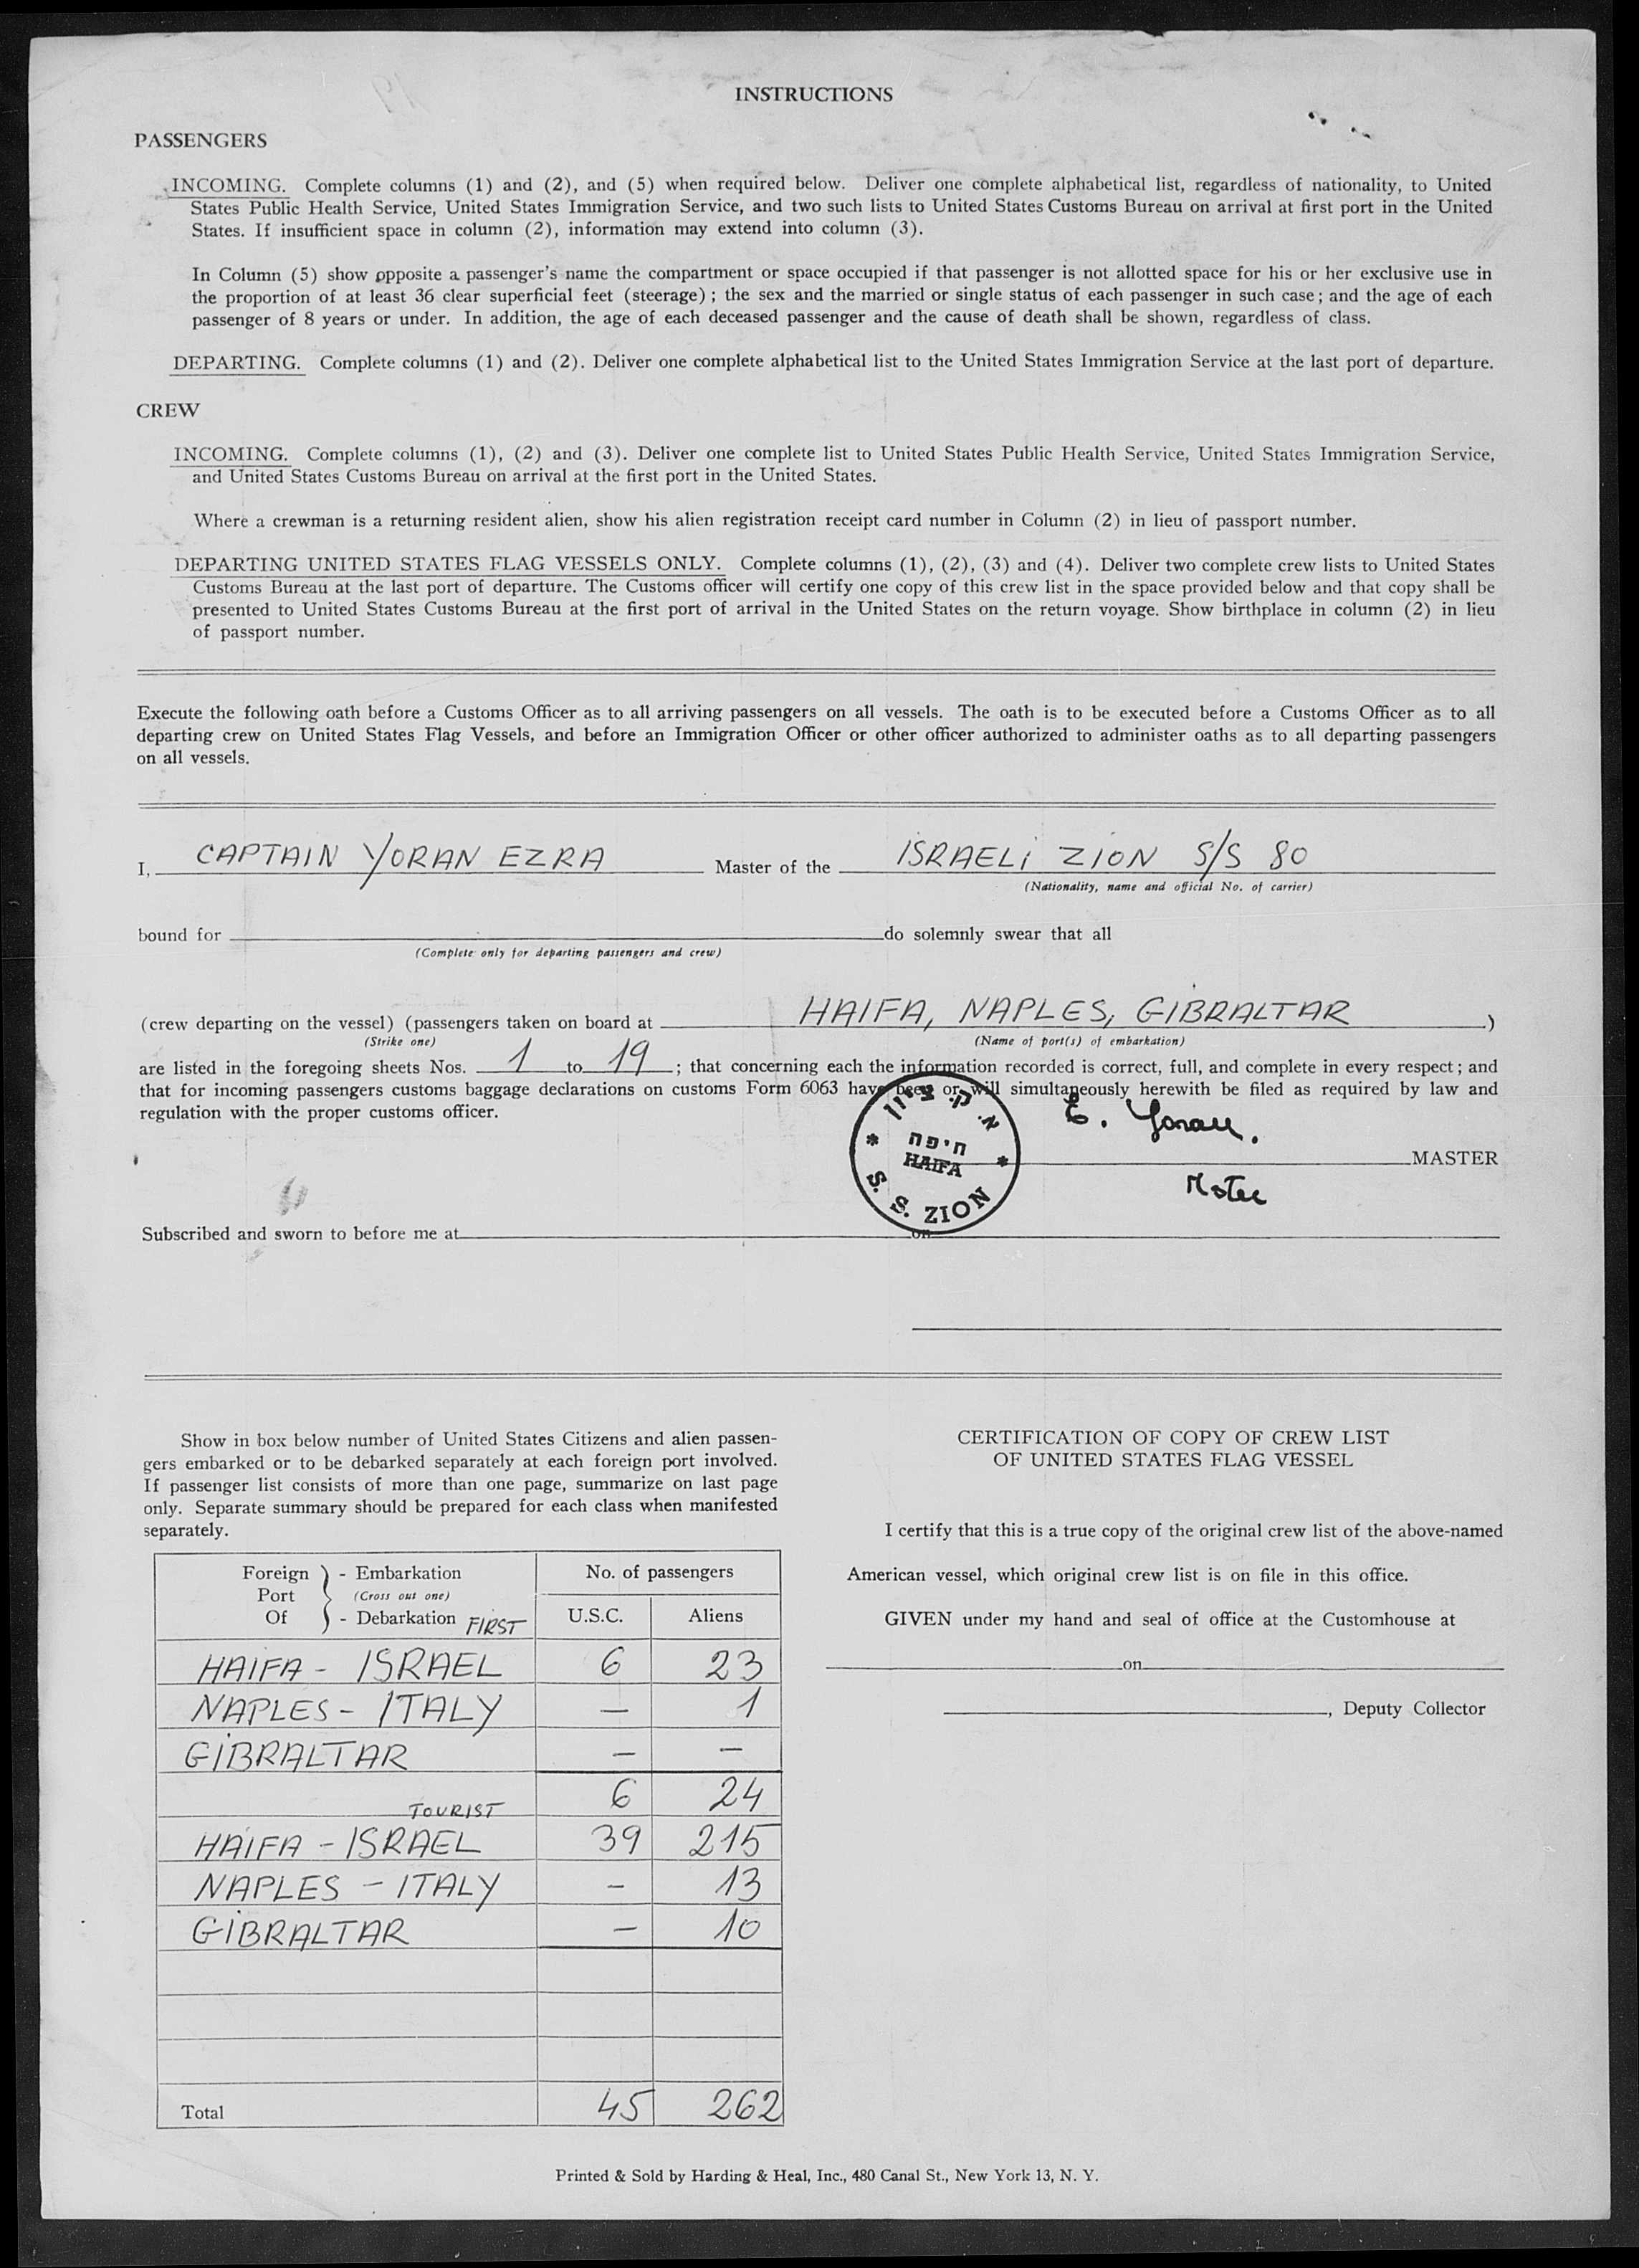 INSTRUCTIONS
PASSENGERS
INCOMING. Complete columns (1) and (2), and (5) when required below. Deliver one complete alphabetical list, regardless of nationality, to United
States Public Health Service, United States Immigration Service, and two such lists to United States Customs Bureau on arrival at first port in the United
States. If insufficient space in column (2), information may extend into column (3).
In Column (5) show opposite a passenger's name the compartment or space occupied if that passenger is not allotted space for his or her exclusive use in
the proportion of at least 36 clear superficial feet (steerage); the sex and the married or single status of each passenger in such case; and the age of each
passenger of 8 years or under. In addition, the age of each deceased passenger and the cause of death shall be shown, regardless of class.
DEPARTING. Complete columns (1) and (2). Deliver one complete alphabetical list to the United States Immigration Service at the last port of departure.
CREW
INCOMING. Complete columns (1), (2) and (3). Deliver one complete list to United States Public Health Service, United States Immigration Service,
and United States Customs Bureau on arrival at the first port in the United States.
Where a crewman is a returning resident alien, show his alien registration receipt card number in Column (2) in lieu of passport number.
DEPARTING UNITED STATES FLAG VESSELS ONLY. Complete columns (1), (2), (3) and (4). Deliver two complete crew lists to United States
Customs Bureau at the last port of departure. The Customs officer will certify one copy of this crew list in the space provided below and that copy shall be
presented to United States Customs Bureau at the first port of arrival in the United States on the return voyage. Show birthplace in column (2) in lieu
of passport number.
Execute the following oath before a Customs Officer as to all arriving passengers on all vessels. The oath is to be executed before a Customs Officer as to all
departing crew on United States Flag Vessels, and before an Immigration Officer or other officer authorized to administer oaths as to all departing passengers
on all vessels.
I, CAPTAIN YORAN EZRA Master of the ISRAELI ZION S/S 80
(Nationality, name and official No. of carrier)
bound for do solemnly swear that all
(Complete only for departing passengers and crew)
(crew departing on the vessel) (passengers taken on board at HAIFA, NAPLES, GIBRALTAR )
(Strike one) (Name of port(s) of embarkation)
are listed in the foregoing sheets Nos. 1 to 19; that concerning each the information recorded is correct, full, and complete in every respect; and
that for incoming passengers customs baggage declarations on customs Form 6063 have been or will simultaneously herewith be filed as required by law and
regulation with the proper customs officer.
א. ק. ציון
חיפה
HAIFA
S. S. ZION
E. Yoran.
MASTER
Subscribed and sworn to before me at on
Show in box below number of United States Citizens and alien passen-
gers embarked or to be debarked separately at each foreign port involved.
If passenger list consists of more than one page, summarize on last page
only. Separate summary should be prepared for each class when manifested
separately.
Foreign - Embarkation No. of passengers
Port (Cross out one)
Of - Debarkation FIRST U.S.C. Aliens
HAIFA - ISRAEL 6 23
NAPLES - ITALY — 1
GIBRALTAR — —
TOURIST 6 24
HAIFA - ISRAEL 39 215
NAPLES - ITALY - 13
GIBRALTAR — 10
Total 45 262
CERTIFICATION OF COPY OF CREW LIST
OF UNITED STATES FLAG VESSEL
I certify that this is a true copy of the original crew list of the above-named
American vessel, which original crew list is on file in this office.
GIVEN under my hand and seal of office at the Customhouse at
on
, Deputy Collector
Printed & Sold by Harding & Heal, Inc., 480 Canal St., New York 13, N. Y.